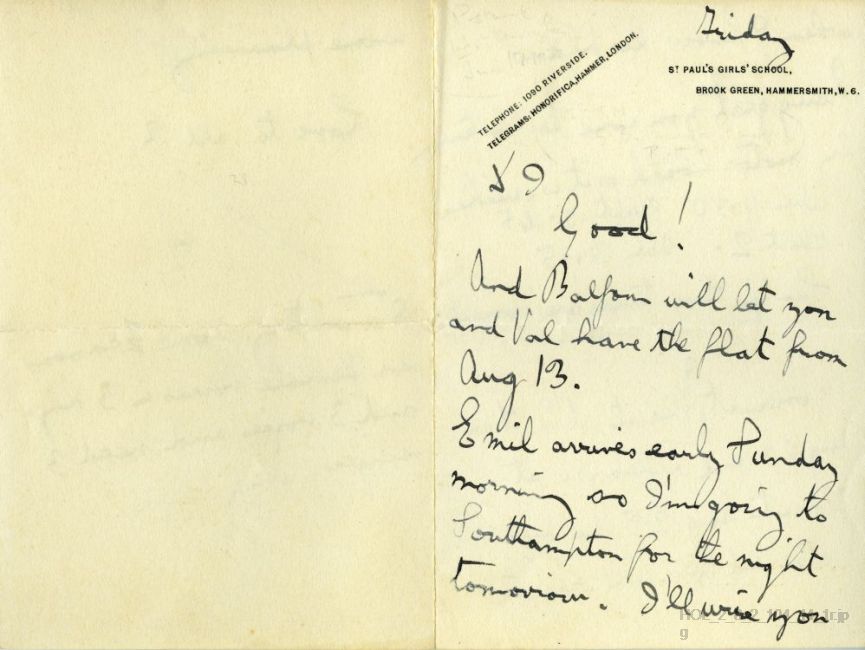 Friday
ST PAUL'S GIRLS' SCHOOL,
BROOK GREEN, HAMMERSMITH, W. 6.
TELEPHONE: 1090 RIVERSIDE.
TELEGRAMS: HONORIFICA, HAMMER, LONDON.
Good!
And Balfour will let you
and Val have the flat from
Aug 13.
Emil arrives early Sunday
morning so I'm going to
Southampton for the night
tomorrow. I'll write you